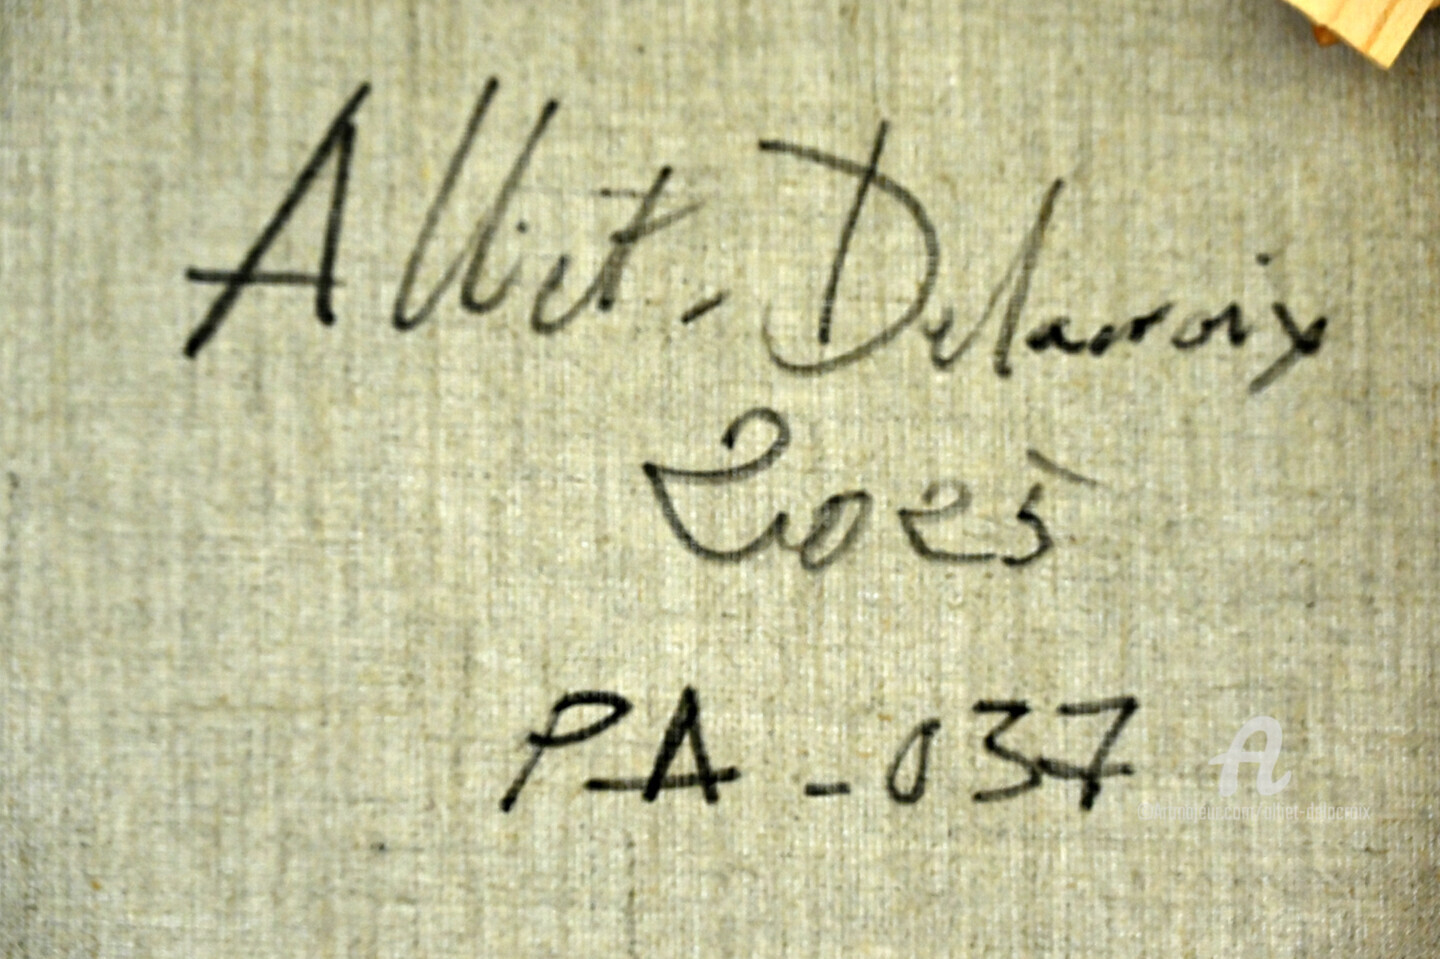 Alliet. Delacroix
2025
PA-037
A
©artmajeur.com/alliet-delacroix